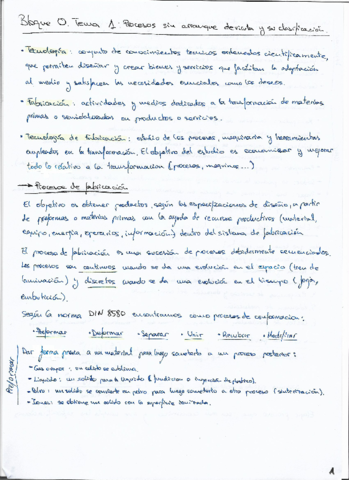 Bloque 0. Tema 1: Procesos sin arranque de viruta y su clasificación
• Tecnología: conjunto de conocimientos técnicos ordenados científicamente,
que permiten diseñar y crear bienes y servicios que facilitan la adaptación
al medio y satisfacen las necesidades esenciales como los deseos.
• Fabricación: actividades y medios dedicados a la transformación de materias
primas o semielaborados en productos o servicios.
• Tecnología de Fabricación: estudio de los procesos, maquinaria y herramientas
empleados en la transformación. El objetivo del estudio es economizar y mejorar
todo lo relativo a la transformación (procesos, máquinas...)
→ Procesos de fabricación
El objetivo es obtener productos, según las especificaciones de diseño, a partir
de preformas o materias primas con la ayuda de recursos productivos (material,
equipo, energía, operarios, información) dentro del sistema de fabricación
El proceso de fabricación es una sucesión de procesos debidamente secuenciados.
Los procesos son continuos cuando se da una evolución en el espacio (tren de
laminación) y discretos cuando se da una evolución en el tiempo (forja,
embutición).
Según la norma DIN 8580 encontramos como procesos de conformación:
• Preformar • Deformar • Separar • Unir • Recubrir • Modificar
Preformar
Dar forma previa a un material para luego someterlo a un proceso posterior:
• Gas o vapor: un sólido se sublima.
• Líquido: un sólido pasa a líquido (fundición o inyección de plástico).
• Polvo: un sólido se convierte en polvo para luego someterlo a otro proceso (sinterización).
• Iones: se obtiene un sólido con la superficie ionizada.
1